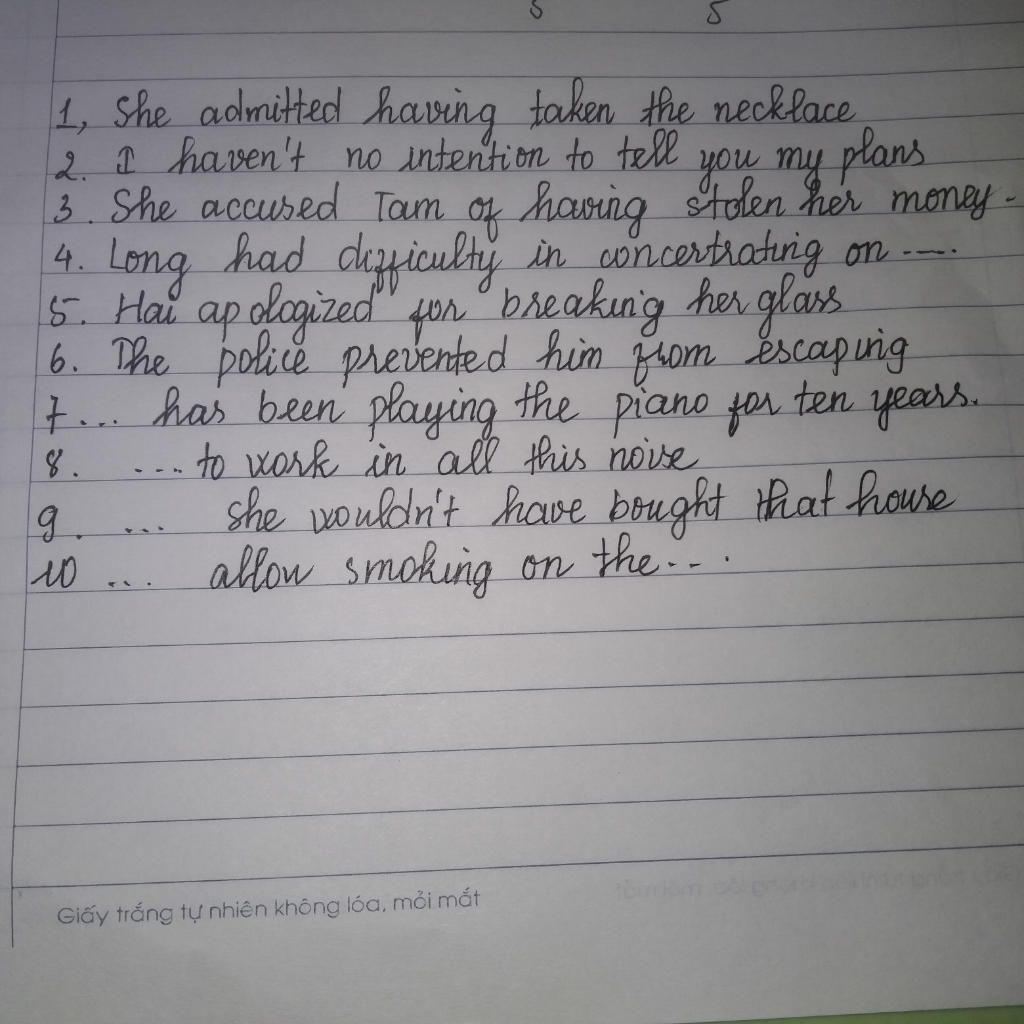 5 5
1, She admitted having taken the necklace
2. I haven't no intention to tell you my plans
3. She accused Tam of having stolen her money.
4. Long had difficulty in concertrating on ....
5. Hai apologized for breaking her glass
6. The police prevented him from escaping
7... has been playing the piano for ten years.
8. .... to work in all this noise
9. ... she wouldn't have bought that house
10 ... allow smoking on the...
Giấy trắng tự nhiên không lóa, mỏi mắt